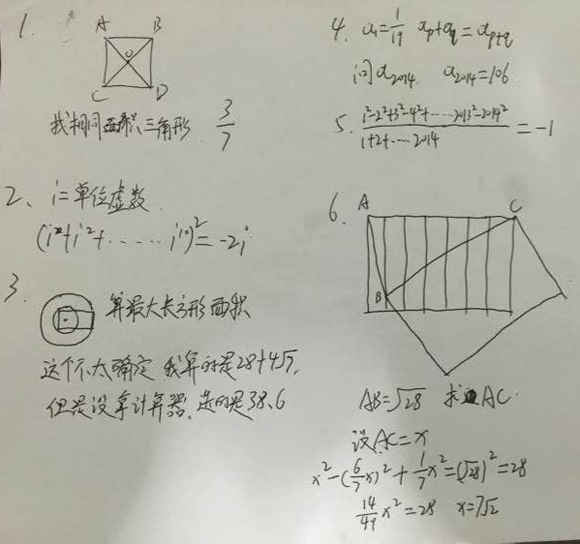 1.
A B
O
C D
找相同面积三角形 3/7
2、i=单位虚数
(i²+i²+.....i¹⁰)²=-2i
3.
算最大长方形面积
这个不太确定 我算的是28+4√7,
但是没拿计算器,选的是38.6
4. a₁=1/19 aₚ+a_q=a_{p+q}
问a₂₀₁₄ a₂₀₁₄=106
5. (1²-2²+3²-4²+....2013²-2014²)/(1+2+....2014) =-1
6.
A C
B
AB=√28 求AC
设AC=x
x²-(6/7x)²+1/7x²=(√28)²=28
14/49x²=28 x=7√2